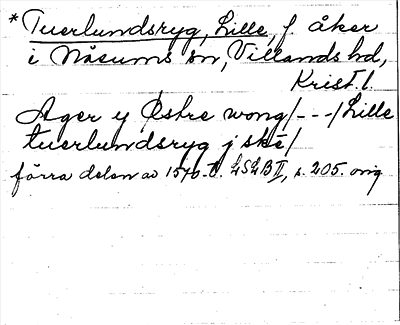 *Tuerlundsryg, Lille, f. åker
i Nåsums sn, Villands hd,
Krist. l.
Ager y Østre wong/---/Lille
tuerlundsryg j skē/
förra delen av 1570-t. LSLB II, s. 205. orig